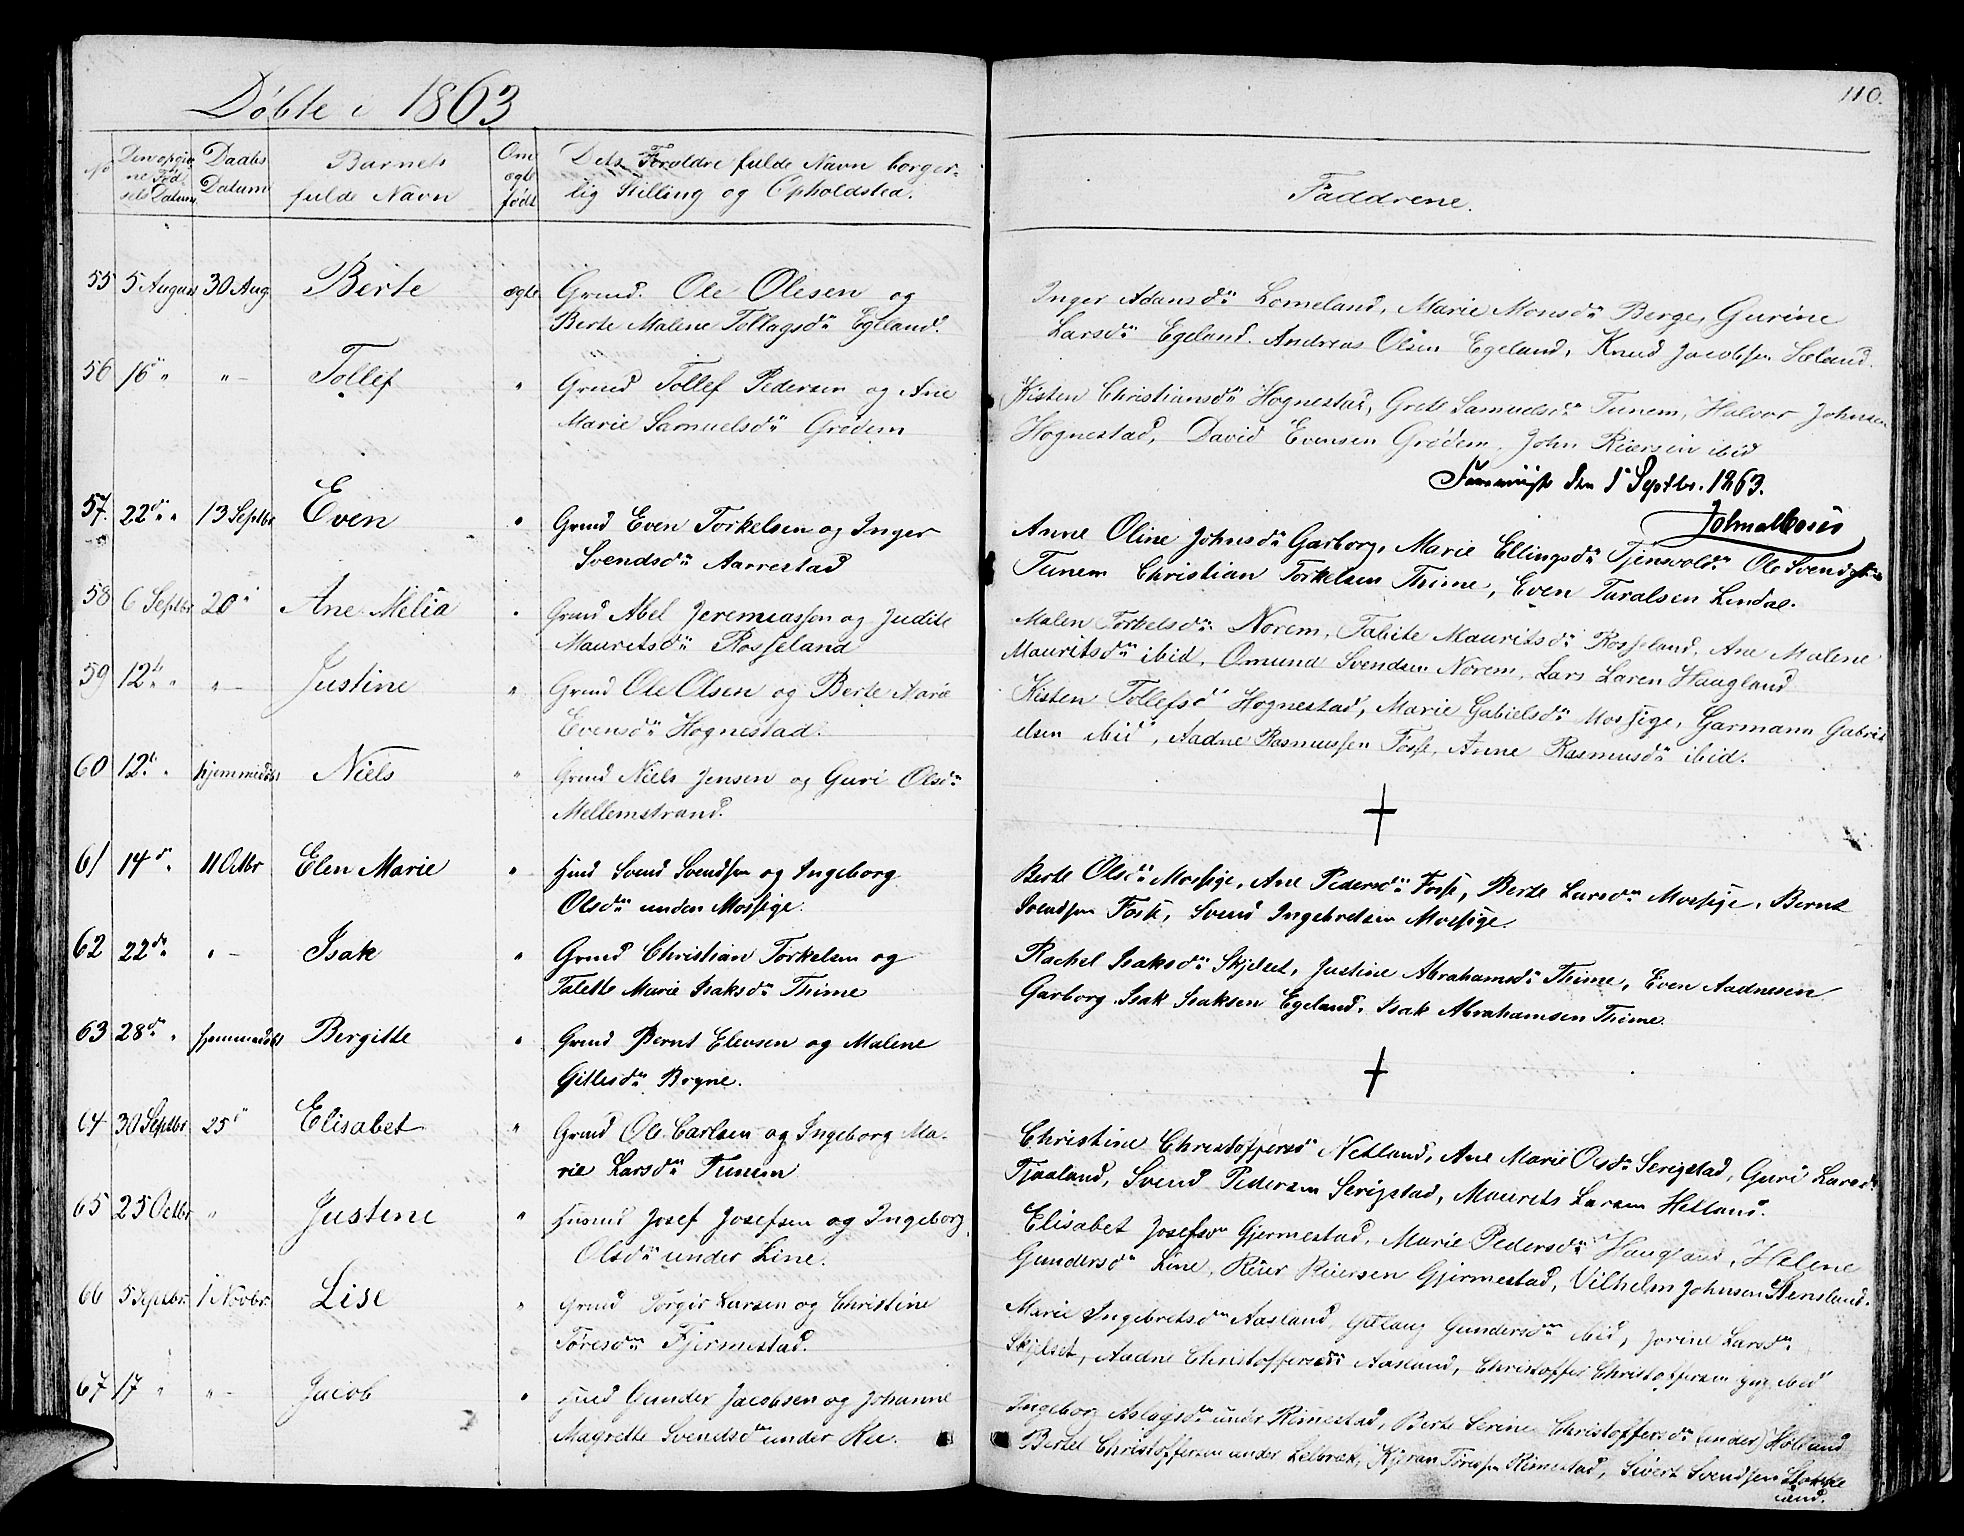 Døbte i 1863
110.
No
Den opgivne Fødsels Datum
Daabs Datum
Barnets fulde Navn
Om ægte født
Dets Foreldre fulde Navn borger-
lig Stilling og Opholdsted.
Faddrene.
55 5 August 30 Aug. Berte ægte Grmd. Ole Olesen og
Berte Malene Tollagsdr Egeland.
Inger Adansdr Lomeland, Marie Monsdr Berge, Gurine
Larsdr Egeland. Andreas Olsen Egeland, Knud Jacobsen Sæland.
56 16 " " — Tollef " Grmd Tollef Pedersen og Ane
Marie Samuelsdr Grødem
Kisten Christiansdr Hognestad, Grete Samuelsdr Tunem, Halvor Johnsen
Hognestad, David Evensen Grødem, John Reiersen ibid
den 1 Septbr. 1863.
57. 22d " 13 Septbr Even " Grmd Even Torkelsen og Inger
Svendsdr Aarrestad
Anne Oline Johnsdr Garborg, Marie Ellingsdr Tjensvold Ole Svendsen
Tunem Christian Torkelsen Thime, Even Taralsen Lindal.
58 6 Septbr 20d Ane Melia " Grmd Abel Jeremiassen og Judite
Mauritsdr Rosseland
Malen Torkelsdr Norem, Tabite Mauritsdr Rosseland, Ane Malene
Mauritsdr ibid, Omund Svendsen Norem, Lars Larsen Haugland
59 12te " " — Justine " Grmd Ole Olsen og Berte Marie
Evensdr Hognestad.
Kisten Tollefsd Hognestad, Marie Gabielsdr Mossige, Garmann Gabri-
elsen ibid, Aadne Rasmussen Fosse, Anne Rasmusdr ibid.
60 12te " hjemmedøbt Niels " Grmd Niels Jensen og Guri Olsdr
Mellemstrand.
†
61 14d " 11 Octbr Elen Marie " Hmd Svend Svendsen og Ingeborg
Olsdr under Mossige.
Berte Olsdr Mossige, Ane Pedersdr Fosse, Berte Larsdr Mossige, Bernt
Svendsen Fosse, Svend Ingebretsen Mossige.
62 22de " — Isak " Grmd Christian Torkelsen og
Talette Marie Isaksdr Thime
Rachel Isaksdr Skjelset, Justine Abrahamsdr Thime, Even Aadnesen
Garborg, Isak Isaksen Egeland, Isak Abrahamsen Thime.
63 28de " hjemmedøbt Bergitte " Grmd Bernt Elevsen og Malene
Gillesdr Bryne.
†
64 30 Septbr. 25d Elisabet " Grmd Ole Carlsen og Ingeborg Ma-
rie Larsdr Tunem
Christine Christoffersd Netland, Ane Marie Olsdr Serigstad, Guri Larsdr
Tjaaland, Svend Pedersen Serigstad, Maurets Larsen Hetland.
65 25 Octbr " Justine " Husmd Josef Josefsen og Ingeborg
Olsdr under Line.
Elisabet Josefsdr Gjermestad, Marie Pedersdr Haugland, Helene
Gundersdr Line, Reier Reiersen Gjermestad, Vilhelm Johnsen Stensland.
66 5 Septbr. 1 Novbr. Lise " Grmd Torger Larsen og Christine
Toresdr Fjermestad.
Marie Ingebretsdr Aasland, Gitlaug Gundersdr ibid, Jorine Larsdr
Skjelset, Aadne Christoffersen Aasland, Christoffer Christoffersen ibid
67 17 " " — Jacob " Hmd Gunder Jacobsen og Johanne
Magrette Svendsdr under Ree.
Ingeborg Aslagsdr under Rimestad, Berte Serine Christoffersdr (under) Høiland
Bertel Christoffersen under Lelbræk, Kjeran Toressen Rimestad, Sivert Svendsen Stokke
land.